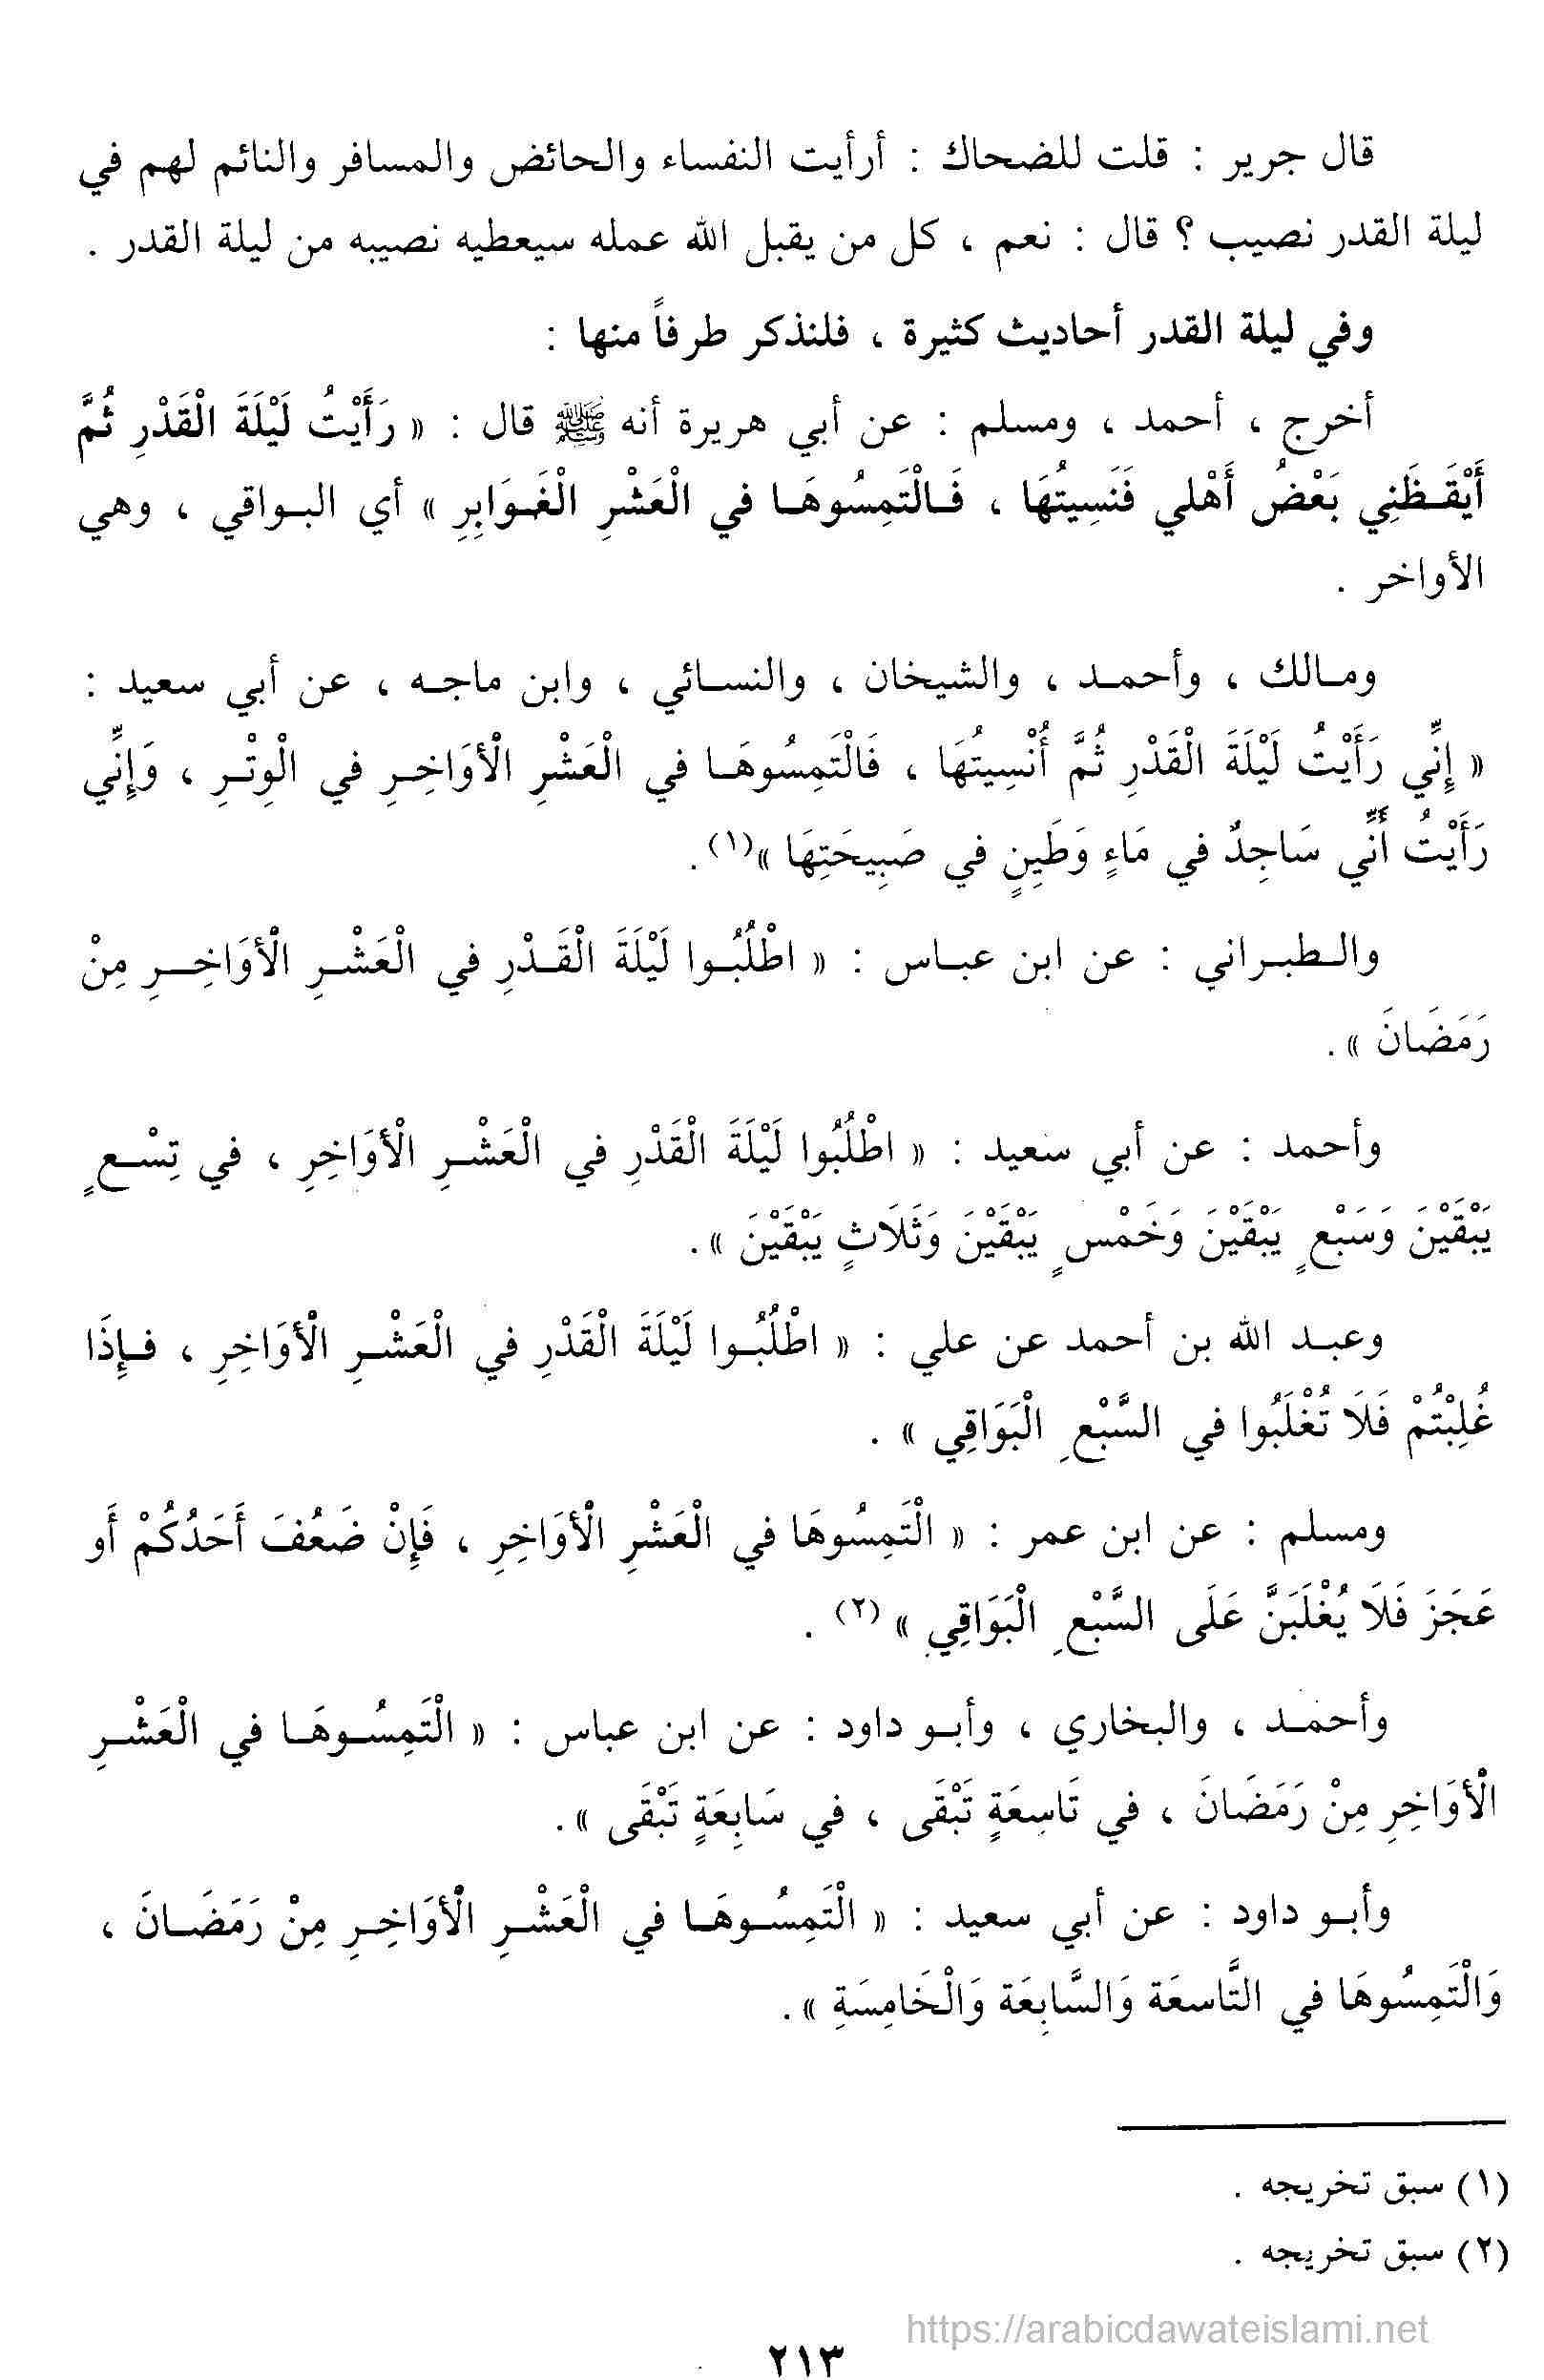 قال جرير : قلت للضحاك : أرأيت النفساء والحائض والمسافر والنائم لهم في
ليلة القدر نصيب ؟ قال : نعم ، كل من يقبل الله عمله سيعطيه نصيبه من ليلة القدر .
وفي ليلة القدر أحاديث كثيرة ، فلنذكر طرفاً منها :
أخرج ، أحمد ، ومسلم : عن أبي هريرة أنه ﷺ قال : « رَأَيْتُ لَيْلَةَ الْقَدْرِ ثُمَّ
أَيْقَظَنِي بَعْضُ أَهْلي فَنَسِيتُهَا ، فَالْتَمِسُوهَا في الْعَشْرِ الْغَوَابِرِ » أي البواقي ، وهي
الأواخر .
ومالك ، وأحمد ، والشيخان ، والنسائي ، وابن ماجه ، عن أبي سعيد :
« إِنِّي رَأَيْتُ لَيْلَةَ الْقَدْرِ ثُمَّ أُنْسِيتُهَا ، فَالْتَمِسُوهَا في الْعَشْرِ الْأَوَاخِرِ في الْوِتْرِ ، وَإِنِّي
رَأَيْتُ أَنِّي سَاجِدٌ في مَاءٍ وَطِينٍ في صَبِيحَتِهَا »(١) .
والطبراني : عن ابن عباس : « اطْلُبُوا لَيْلَةَ الْقَدْرِ في الْعَشْرِ الْأَوَاخِرِ مِنْ
رَمَضَانَ ».
وأحمد : عن أبي سعيد : « اطْلُبُوا لَيْلَةَ الْقَدْرِ في الْعَشْرِ الْأَوَاخِرِ ، في تِسْعٍ
يَبْقَيْنَ وَسَبْعٍ يَبْقَيْنَ وَخَمْسٍ يَبْقَيْنَ وَثَلَاثٍ يَبْقَيْنَ ».
وعبد الله بن أحمد عن علي : « اطْلُبُوا لَيْلَةَ الْقَدْرِ في الْعَشْرِ الْأَوَاخِرِ ، فَإِذَا
غُلِبْتُمْ فَلَا تُغْلَبُوا في السَّبْعِ الْبَوَاقِي » .
ومسلم : عن ابن عمر : « الْتَمِسُوهَا في الْعَشْرِ الْأَوَاخِرِ ، فَإِنْ ضَعُفَ أَحَدُكُمْ أَو
عَجَزَ فَلَا يُغْلَبَنَّ عَلَى السَّبْعِ الْبَوَاقِي » (٢) .
وأحمد ، والبخاري ، وأبو داود : عن ابن عباس : « الْتَمِسُوهَا في الْعَشْرِ
الْأَوَاخِرِ مِنْ رَمَضَانَ ، في تَاسِعَةٍ تَبْقَى ، في سَابِعَةٍ تَبْقَى ».
وأبو داود : عن أبي سعيد : « الْتَمِسُوهَا في الْعَشْرِ الْأَوَاخِرِ مِنْ رَمَضَانَ ،
وَالْتَمِسُوهَا في التَّاسعَة وَالسَّابِعَة وَالْخَامِسَةِ ».
(١) سبق تخريجه .
(٢) سبق تخريجه .
https://arabicdawateislami.net
٢١٣